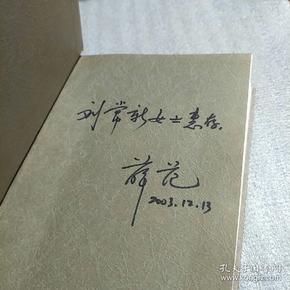 刘常新女士惠存
薛范
2003.12.13
孔夫子旧书网